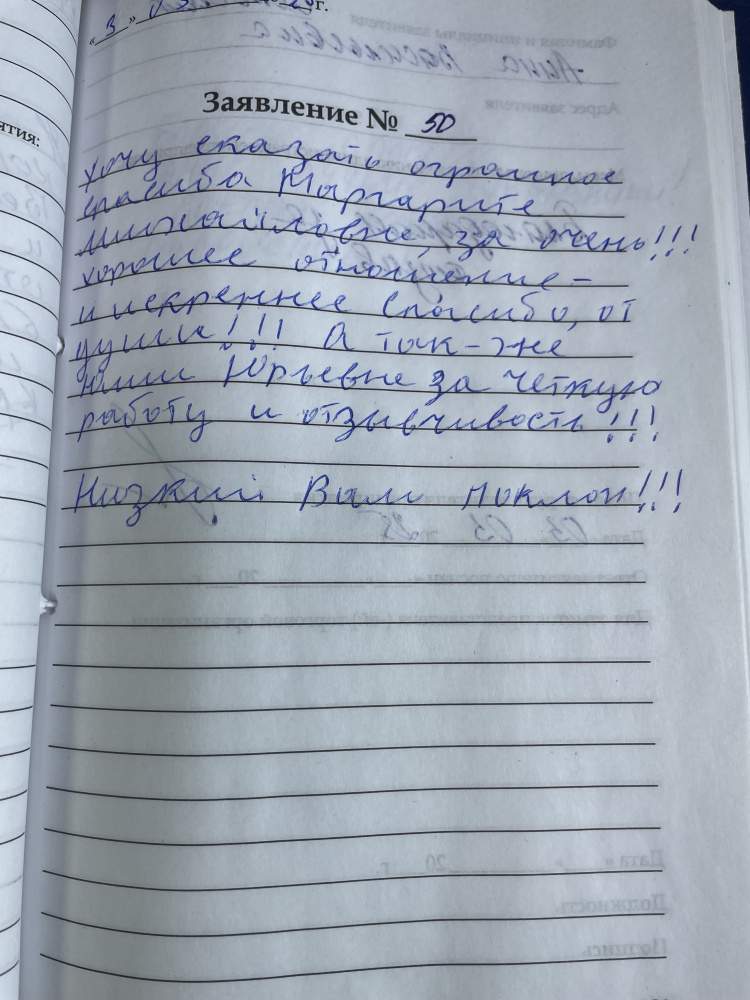 « 3 »
г.
ятия:
Заявление № 50
хочу сказать огромное
спасиба Маргарите
Михайловне, за очень!!!
хорошее отношение –
и искреннее спасибо, от
души!!! А так-же
Юлии Юрьевне за четкую
работу и отзывчивость!!!
Низкий Вам поклон!!!